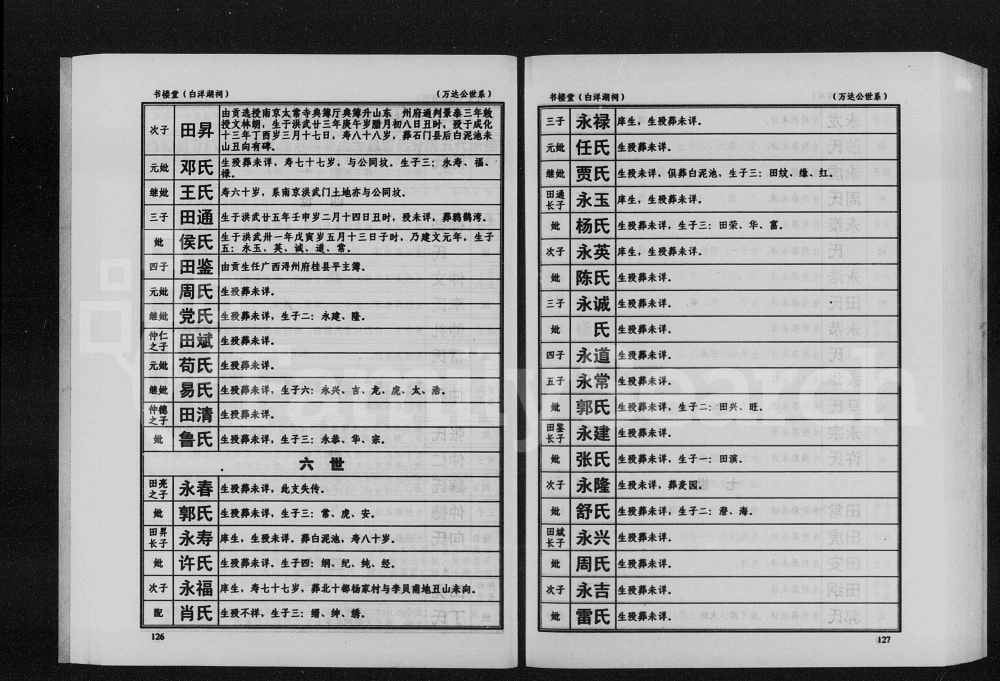 书楼堂（白洋湖祠） （万达公世系）
次子 田昇 由贡选授南京太常寺典簿厅典簿升山东 州府通判景泰三年敕
授文林朗，生于洪武廿三年庚午岁腊月初八日丑时，殁于成化
十三年丁酉岁三月十七日，寿八十八岁，葬石门县后白泥池未
山丑向有碑。
元妣 邓氏 生殁葬未详，寿七十七岁，与公同坟。生子三：永寿、福、
禄。
继妣 王氏 寿六十岁，系南京洪武门土地亦与公同坟。
三子 田通 生于洪武廿五年壬申岁二月十四日丑时，殁未详，葬鸦鹊湾。
妣 侯氏 生于洪武卅一年戊寅岁五月十三日子时，乃建文元年，生子
五：永玉、英、诚、道、常。
四子 田鉴 由贡生任广西浔州府桂县平主簿。
元妣 周氏 生殁葬未详。
继妣 党氏 生殁葬未详，生子二：永建、隆。
仲仁之子 田斌 生殁葬未详。
元妣 苟氏 生殁葬未详。
继妣 易氏 生殁葬未详，生子六：永兴、吉、龙、虎、太、浩。
仲德之子 田清 生殁葬未详。
妣 鲁氏 生殁葬未详，生子三：永恭、华、宗。
六世
田亮之子 永春 生殁葬未详，此支失传。
妣 郭氏 生殁葬未详，生子三：常、虎、安。
田昇长子 永寿 庠生，生殁未详。葬白泥池，寿八十岁。
妣 许氏 生殁葬未详．生子四：纲、纪、纯、经。
次子 永福 庠生，寿七十七岁，葬北十都杨家村与李贝甫地丑山未向。
配 肖氏 生殁不祥，生子三：缙、绅、绣。
126
书楼堂（白洋湖祠） （万达公世系）
三子 永禄 庠生，生殁葬未详。
元妣 任氏 生殁葬未详。
继妣 贾氏 生殁未详，俱葬白泥池，生子三：田纹、缘、红。
田通长子 永玉 庠生，生殁葬未详。
妣 杨氏 生殁葬未详，生子三：田荣、华、富。
次子 永英 庠生，生殁葬未详。
妣 陈氏 生殁葬未详。
三子 永诚 生殁葬未详。
妣 氏 生殁葬未详。
四子 永道 生殁葬未详。
五子 永常 生殁葬未详。
妣 郭氏 生殁葬未详，生子二：田兴、旺。
田鉴长子 永建 生殁葬未详。
妣 张氏 生殁葬未详，生子一：田滨。
次子 永隆 生殁未详，葬麦园。
妣 舒氏 生殁葬未详，生子二：澄、海。
田斌长子 永兴 生殁葬未详。
妣 周氏 生殁葬未详。
次子 永吉 生殁葬未详。
妣 雷氏 生殁葬未详。
127